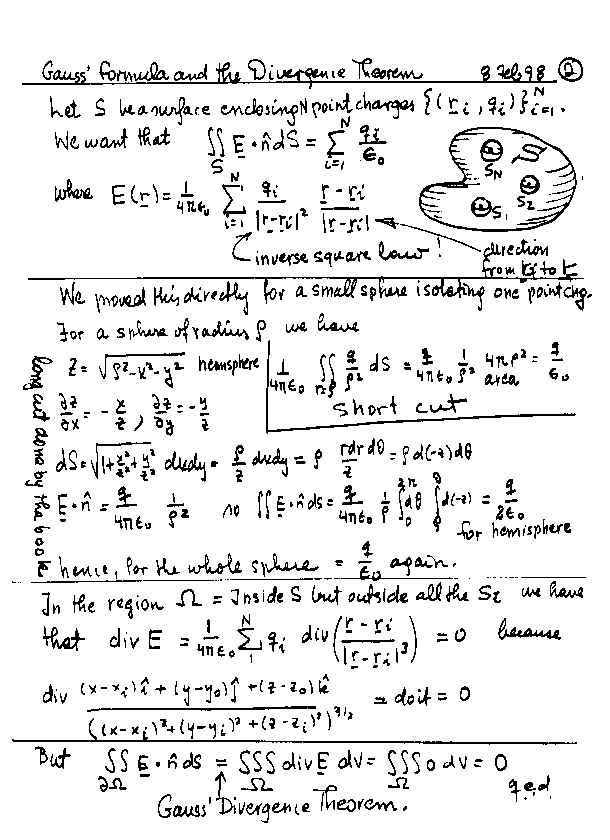 Gauss' Formula and the Divergence Theorem 8 Feb 98 ②
Let S be a surface enclosing N point charges {(r̲ᵢ, qᵢ)}ᵢ₌₁ᴺ.
We want that ∬_S E̲ • n̂ dS = ∑ᵢ₌₁ᴺ qᵢ/ε₀
S_N S
S₁ S₂
where E(r̲) = 1/4πε₀ ∑ᵢ₌₁ᴺ qᵢ/|r̲-r̲ᵢ|² (r̲-r̲ᵢ)/|r̲-r̲ᵢ|
inverse square law! direction
from r̲ᵢ to r̲
We proved this directly for a small sphere isolating one point chg.
For a sphere of radius ρ we have
z = √(ρ²-x²-y²) hemisphere
1/4πε₀ ∬_{r=ρ} q/ρ² dS = q/4πε₀ 1/ρ² 4πρ² = q/ε₀
area
short cut
∂z/∂x = -x/z, ∂z/∂y = -y/z
long cut done by the book
dS = √(1+x²/z²+y²/z²) dxdy = ρ/z dxdy = ρ rdrdθ/z = ρ d(-z)dθ
E̲ • n̂ = q/4πε₀ 1/ρ² so ∬ E̲ • n̂ dS = q/4πε₀ 1/ρ ∫₀^{2π} dθ ∫ d(-z) = q/2ε₀
for hemisphere
hence, for the whole sphere = q/ε₀ again.
In the region Ω = Inside S but outside all the Sᵢ we have
that div E = 1/4πε₀ ∑₁ᴺ qᵢ div((r̲-r̲ᵢ)/|r̲-r̲ᵢ|³) = 0 because
div ((x-xᵢ)î + (y-y₀)ĵ + (z-z₀)k̂)/((x-xᵢ)²+(y-yᵢ)²+(z-zᵢ)²)^{3/2} = do it = 0
But ∬_{∂Ω} E̲ • n̂ dS = ∭_Ω div E̲ dV = ∭_Ω 0 dV = 0
q.e.d.
Gauss' Divergence Theorem.